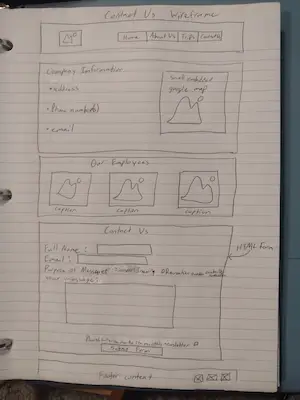 Contact Us Wireframe
Home About Us Trips Contact
Company Information
• address
• Phone number(s)
• email
small embedded
google map
Our Employees
caption caption caption
Contact Us
Full Name:
Email:
Purpose of Message:
Your message:
HTML Form
Submit Form
Footer content